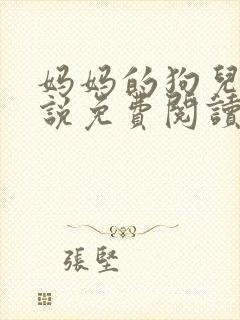 妈妈的狗兒
說免費閱讀
張堅